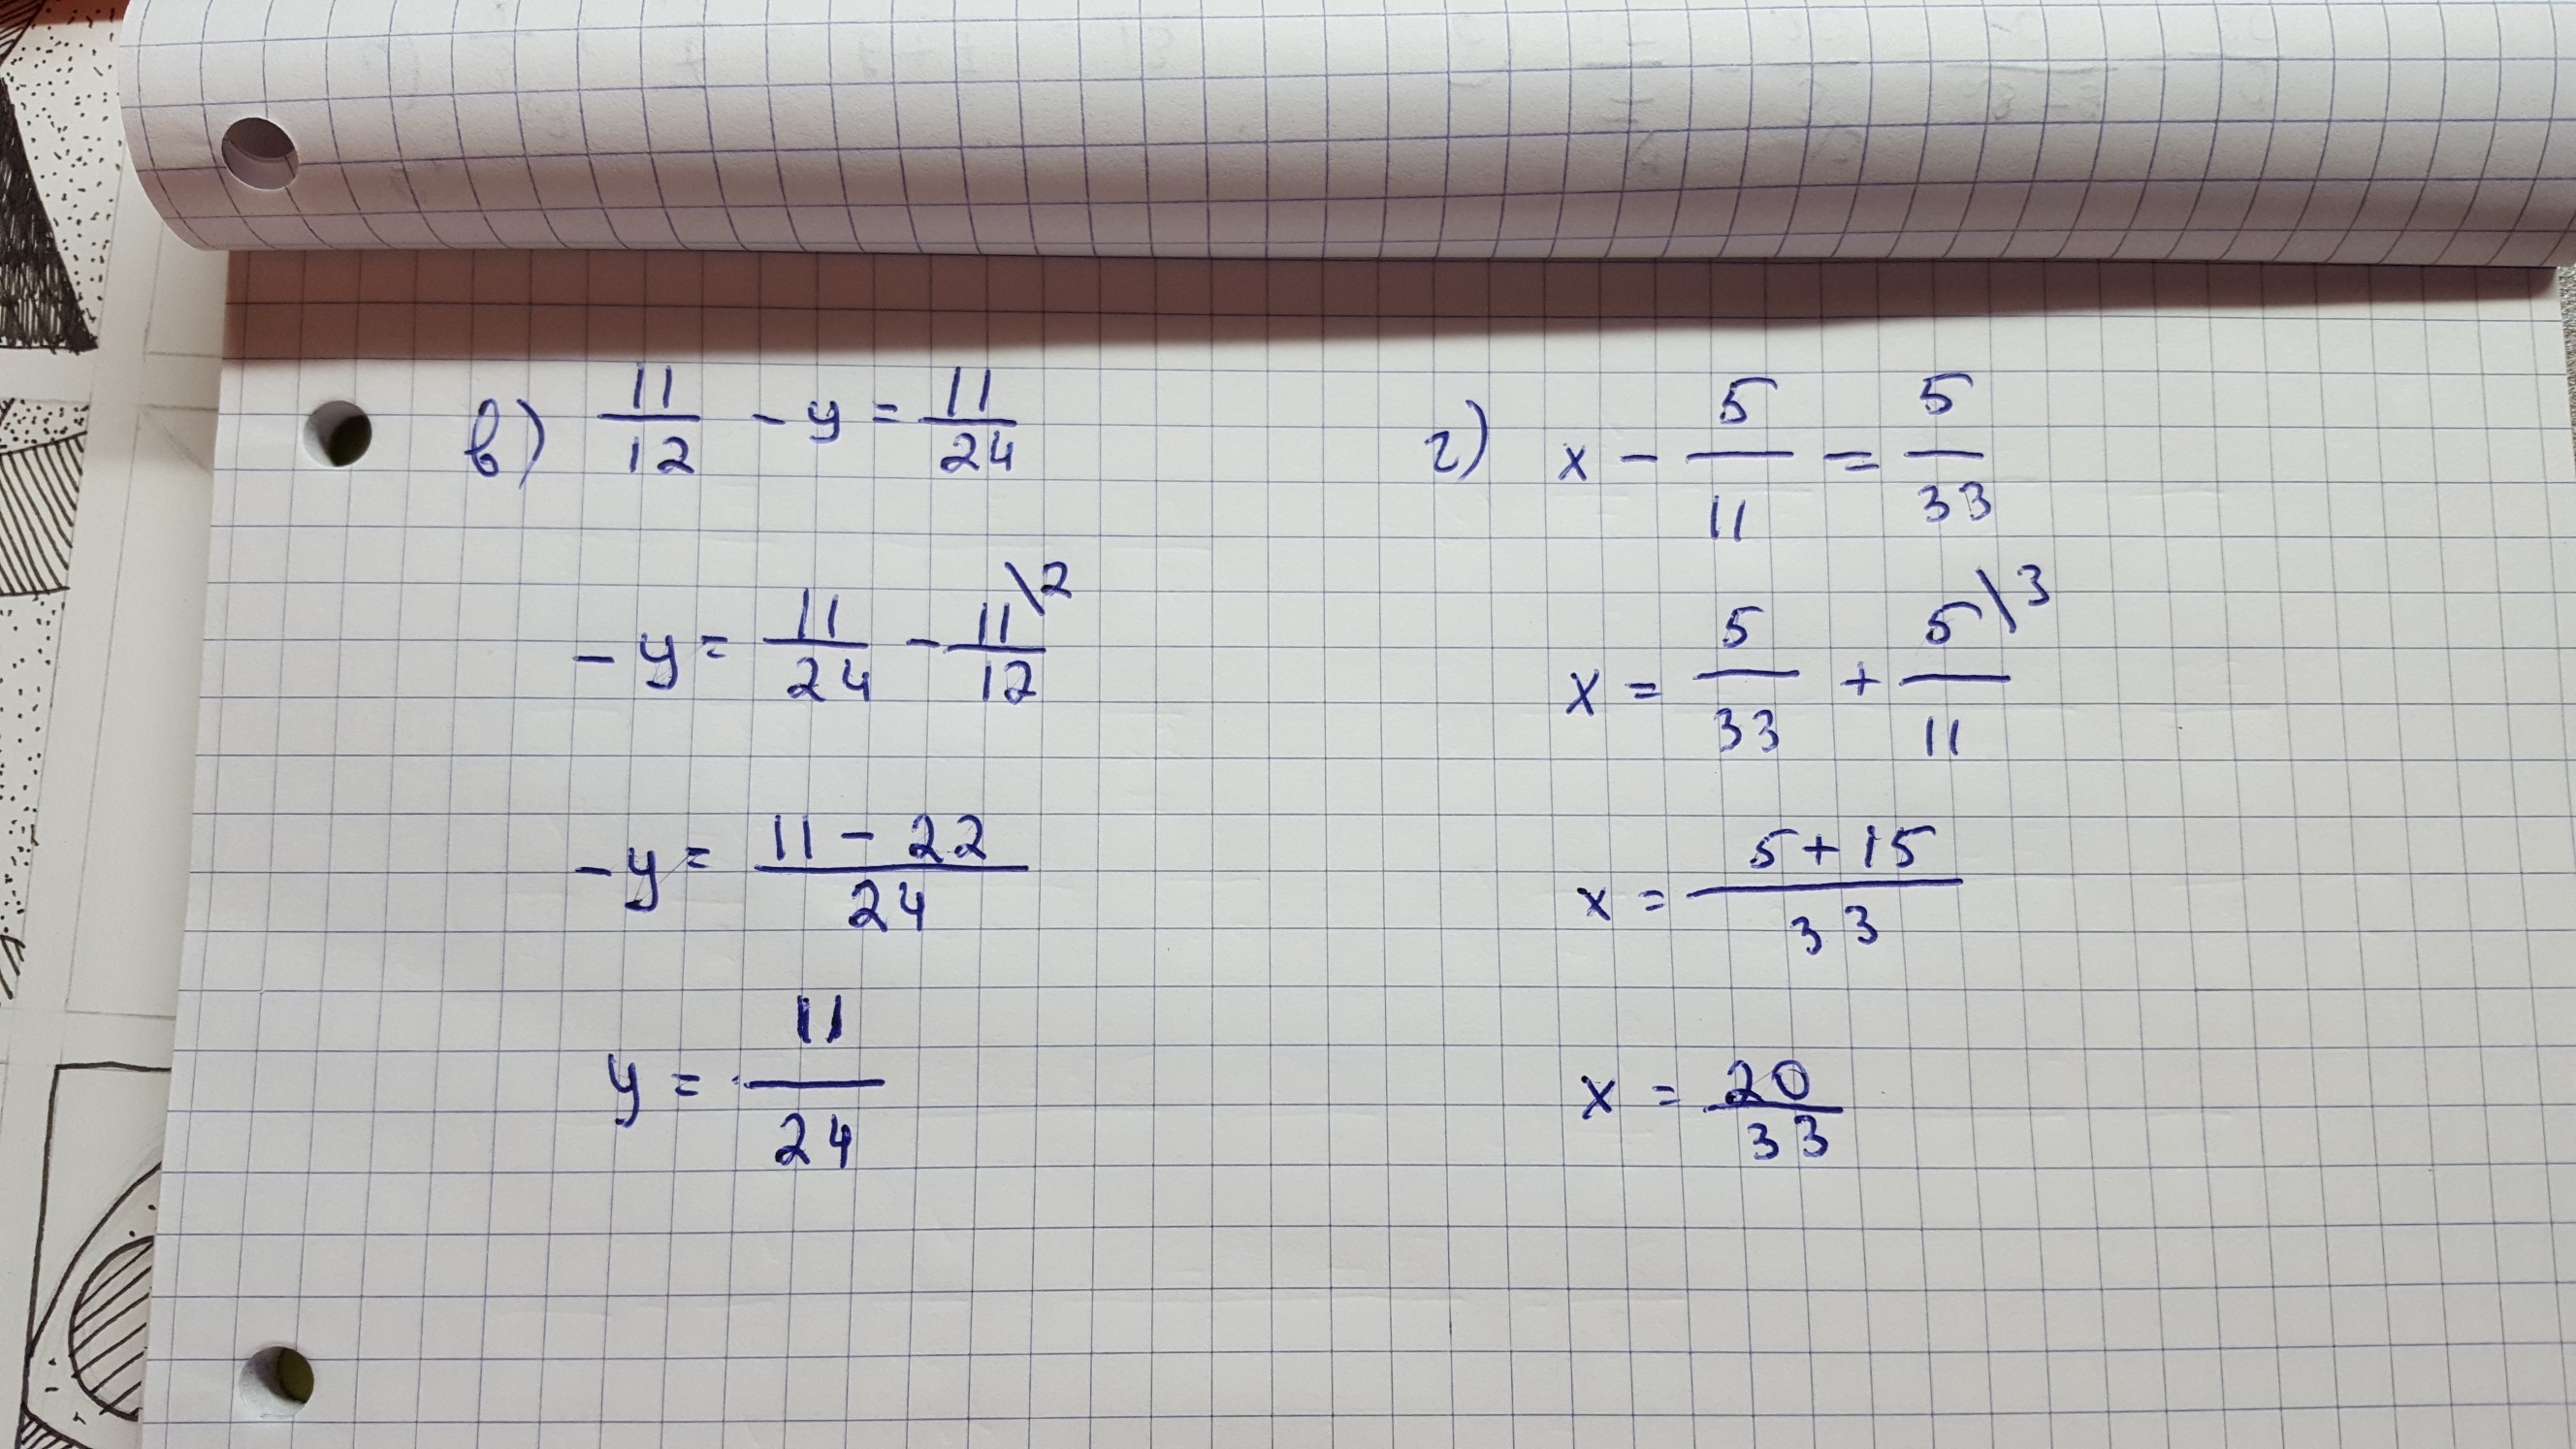 в) 11/12 - y = 11/24
-y = 11/24 - 11\2/12
-y = (11 - 22)/24
y = 11/24
г) x - 5/11 = 5/33
x = 5/33 + 5\3/11
x = (5 + 15)/33
x = 20/33